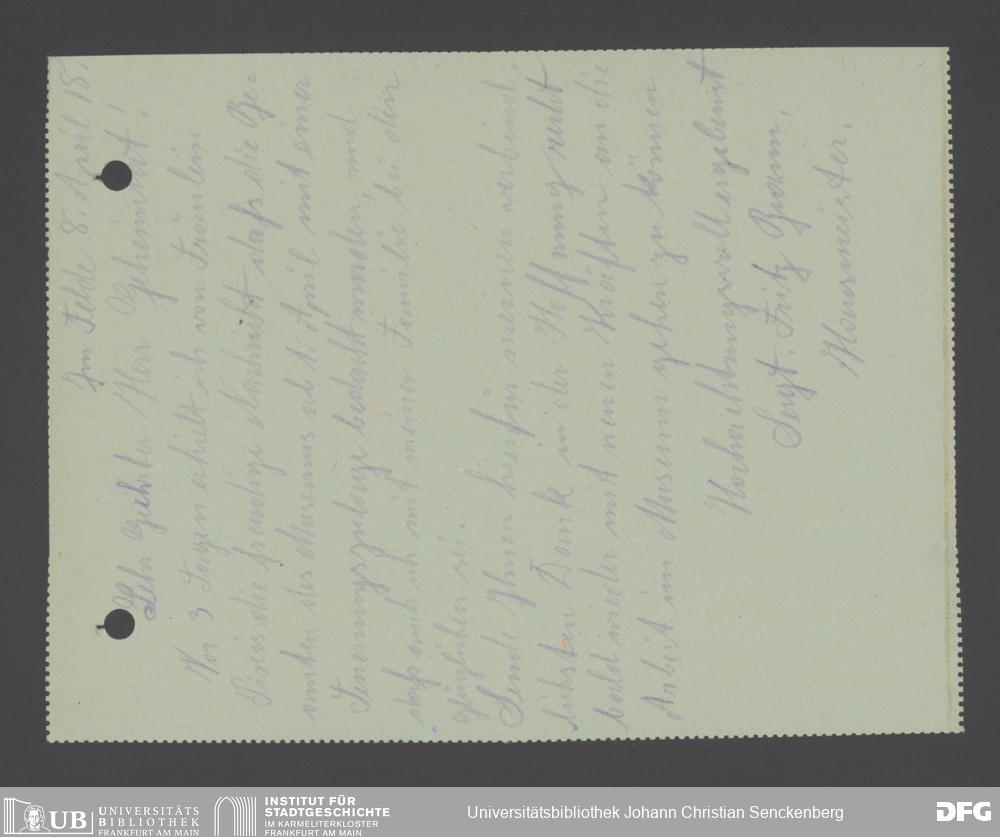 Im Felde 8. April 18.
Sehr Geehrter Herr Geheimrat!
Vor 3 Tagen erhielt ich von Fräulein
die freudige Nachricht dafs die Be-
amten des Museums ab 1. April mit einer
Teuerungszulage bedacht wurden, und
dafs auch ich mit meiner Familie bei dem
sei.
Sende Ihnen hierfür meinen verbind-
lichsten Dank in der Hoffnung recht
bald wieder mit neuen Kräften an die
Arbeit im Museum gehen zu können
Hochachtungsvoll ergebenst
Sergt. Fritz Braun,
Hausmeister.
UB UNIVERSITÄTS
BIBLIOTHEK
FRANKFURT AM MAIN
INSTITUT FÜR
STADTGESCHICHTE
IM KARMELITERKLOSTER
FRANKFURT AM MAIN
Universitätsbibliothek Johann Christian Senckenberg
DFG